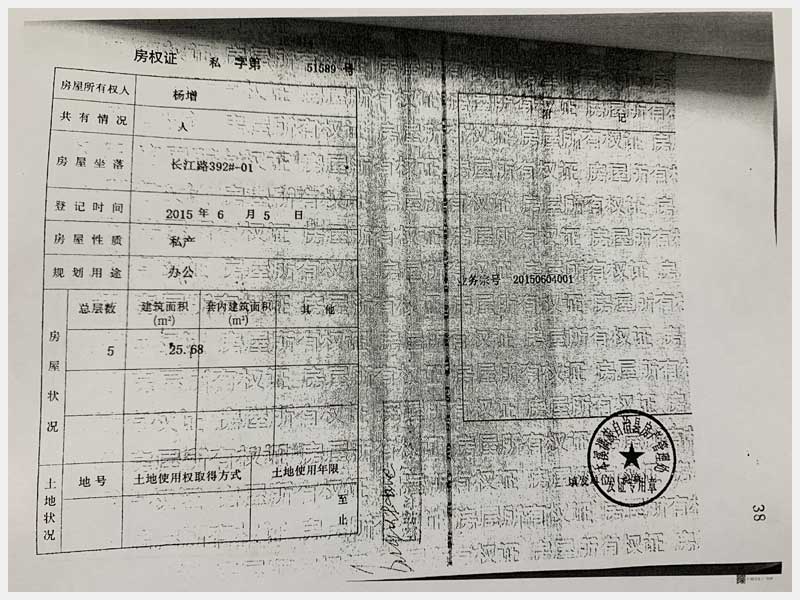 房权证 私 字第 51589 号
房屋所有权人 杨增
共有情况 人
房屋坐落 长江路392#-01
登记时间 2015 年 6 月 5 日
房屋性质 私产
规划用途 办公
房屋状况
总层数 建筑面积(m²) 套内建筑面积(m²) 其他
5 25.68
土地状况
地号 土地使用权取得方式 土地使用年限
至
止
附 记
业务宗号 20150604001
填发单位
发证专用章
38